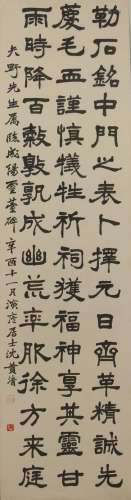 勒石銘中門之表卜擇元日齊革精誠先
薦毛血謹慎犧牲祈祀獲福神享其靈甘
雨時降百穀敦孰成幽荒率服徐方來庭
先生屬臨成陽靈臺碑 辛酉十一月 居士沈